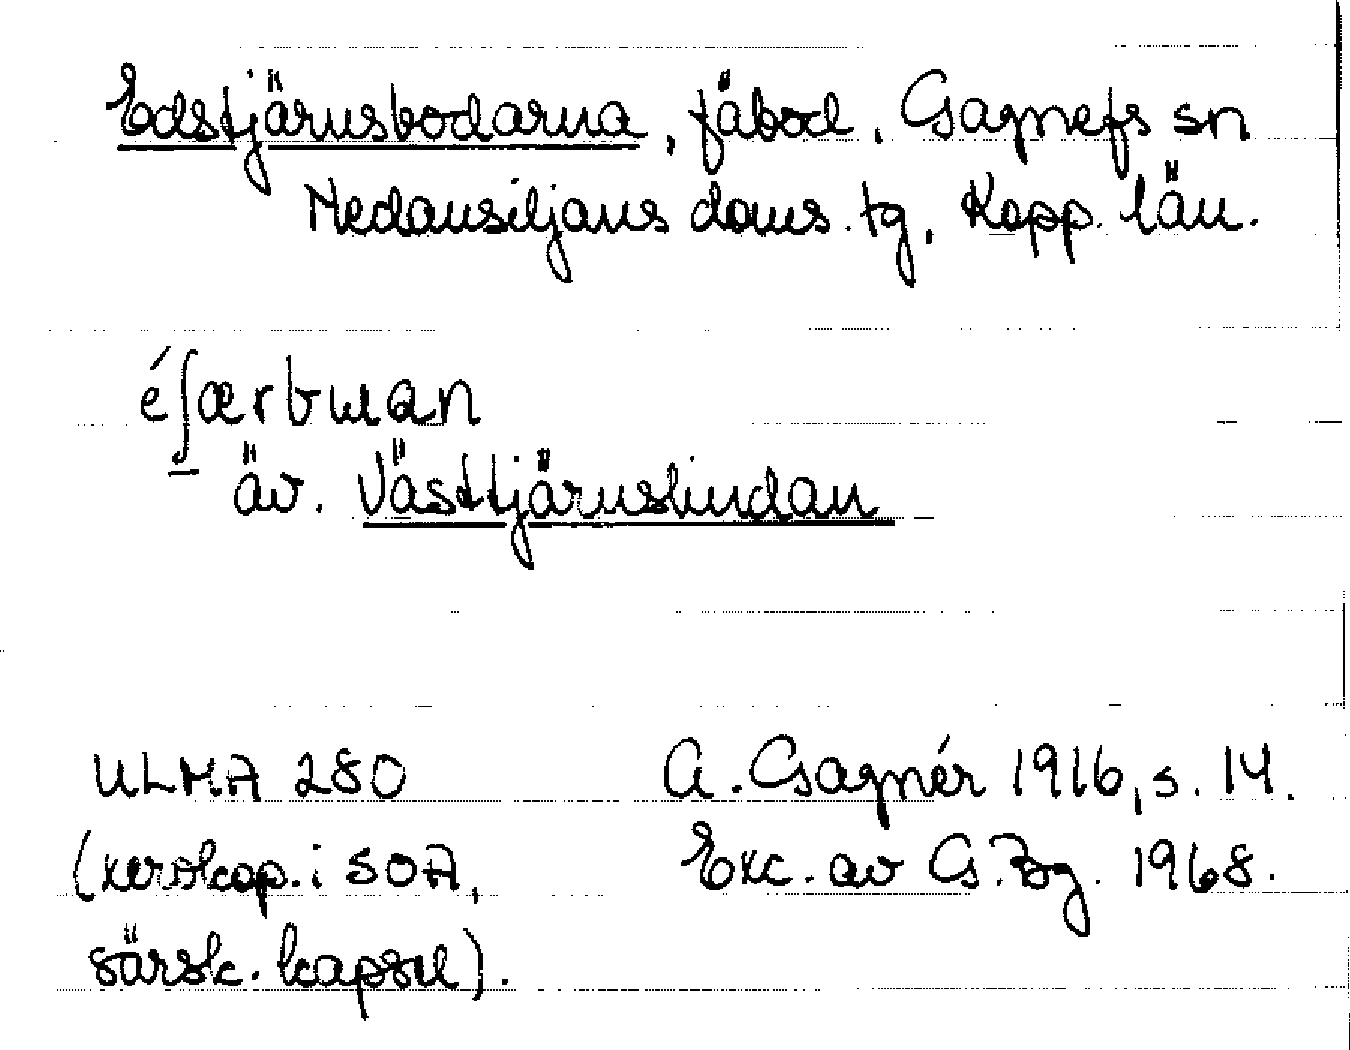 Edstjärnsbodarna, fäbod, Gagnefs sn
Nedansiljans doms. tg, Kopp. län.
éʃærbuan
äv. Västtjärnslindan
ULMA 280
(xeroxkop. i SOA,
särsk. kapsel).
A. Gagnér 1916, s. 14.
Exc. av G. Bg. 1968.